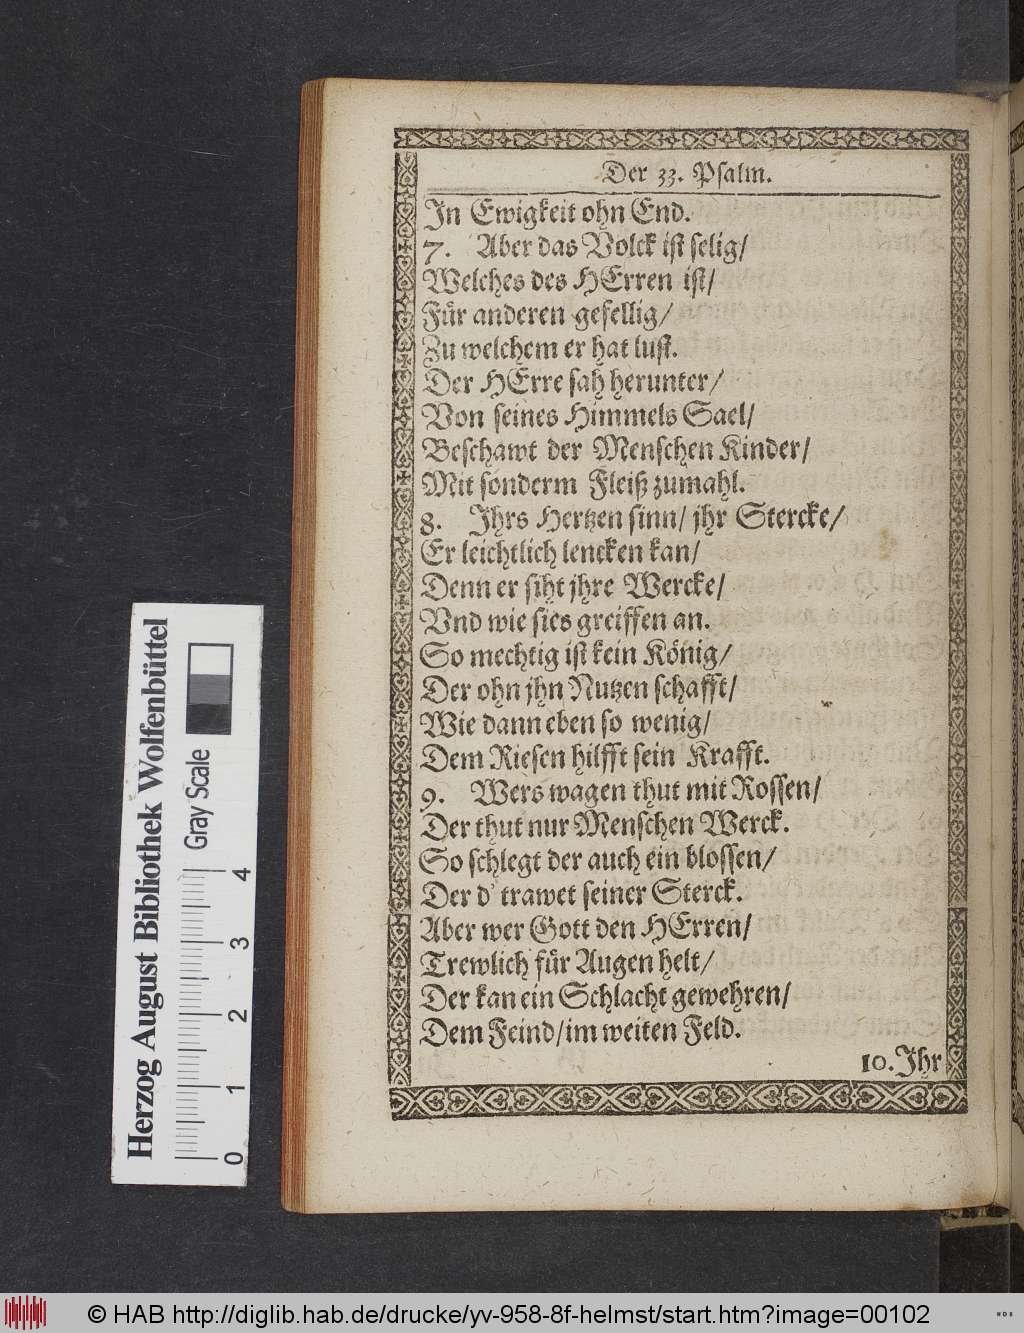 Der 33. Psalm.
In Ewigkeit ohn End.
7. Aber das Volck ist selig/
Welches des HErren ist/
Für anderen gesellig/
Zu welchem er hat lust.
Der HErre sah herunter/
Von seines Himmels Sael/
Beschawt der Menschen Kinder/
Mit sonderm Fleiß zumahl.
8. Ihrs Hertzen sinn/ jhr Stercke/
Er leichtlich lencken kan/
Denn er siht jhre Wercke/
Vnd wie sies greiffen an.
So mechtig ist kein König/
Der ohn jhn Nutzen schafft/
Wie dann eben so wenig/
Dem Riesen hilfft sein Krafft.
9. Wers wagen thut mit Rossen/
Der thut nur Menschen Werck.
So schlegt der auch ein blossen/
Der d' trawet seiner Sterck.
Aber wer Gott den HErren/
Trewlich für Augen helt/
Der kan ein Schlacht gewehren/
Dem Feind/ im weiten Feld.
10. Ihr
Herzog August Bibliothek Wolfenbüttel
Gray Scale
0 1 2 3 4
© HAB http://diglib.hab.de/drucke/yv-958-8f-helmst/start.htm?image=00102